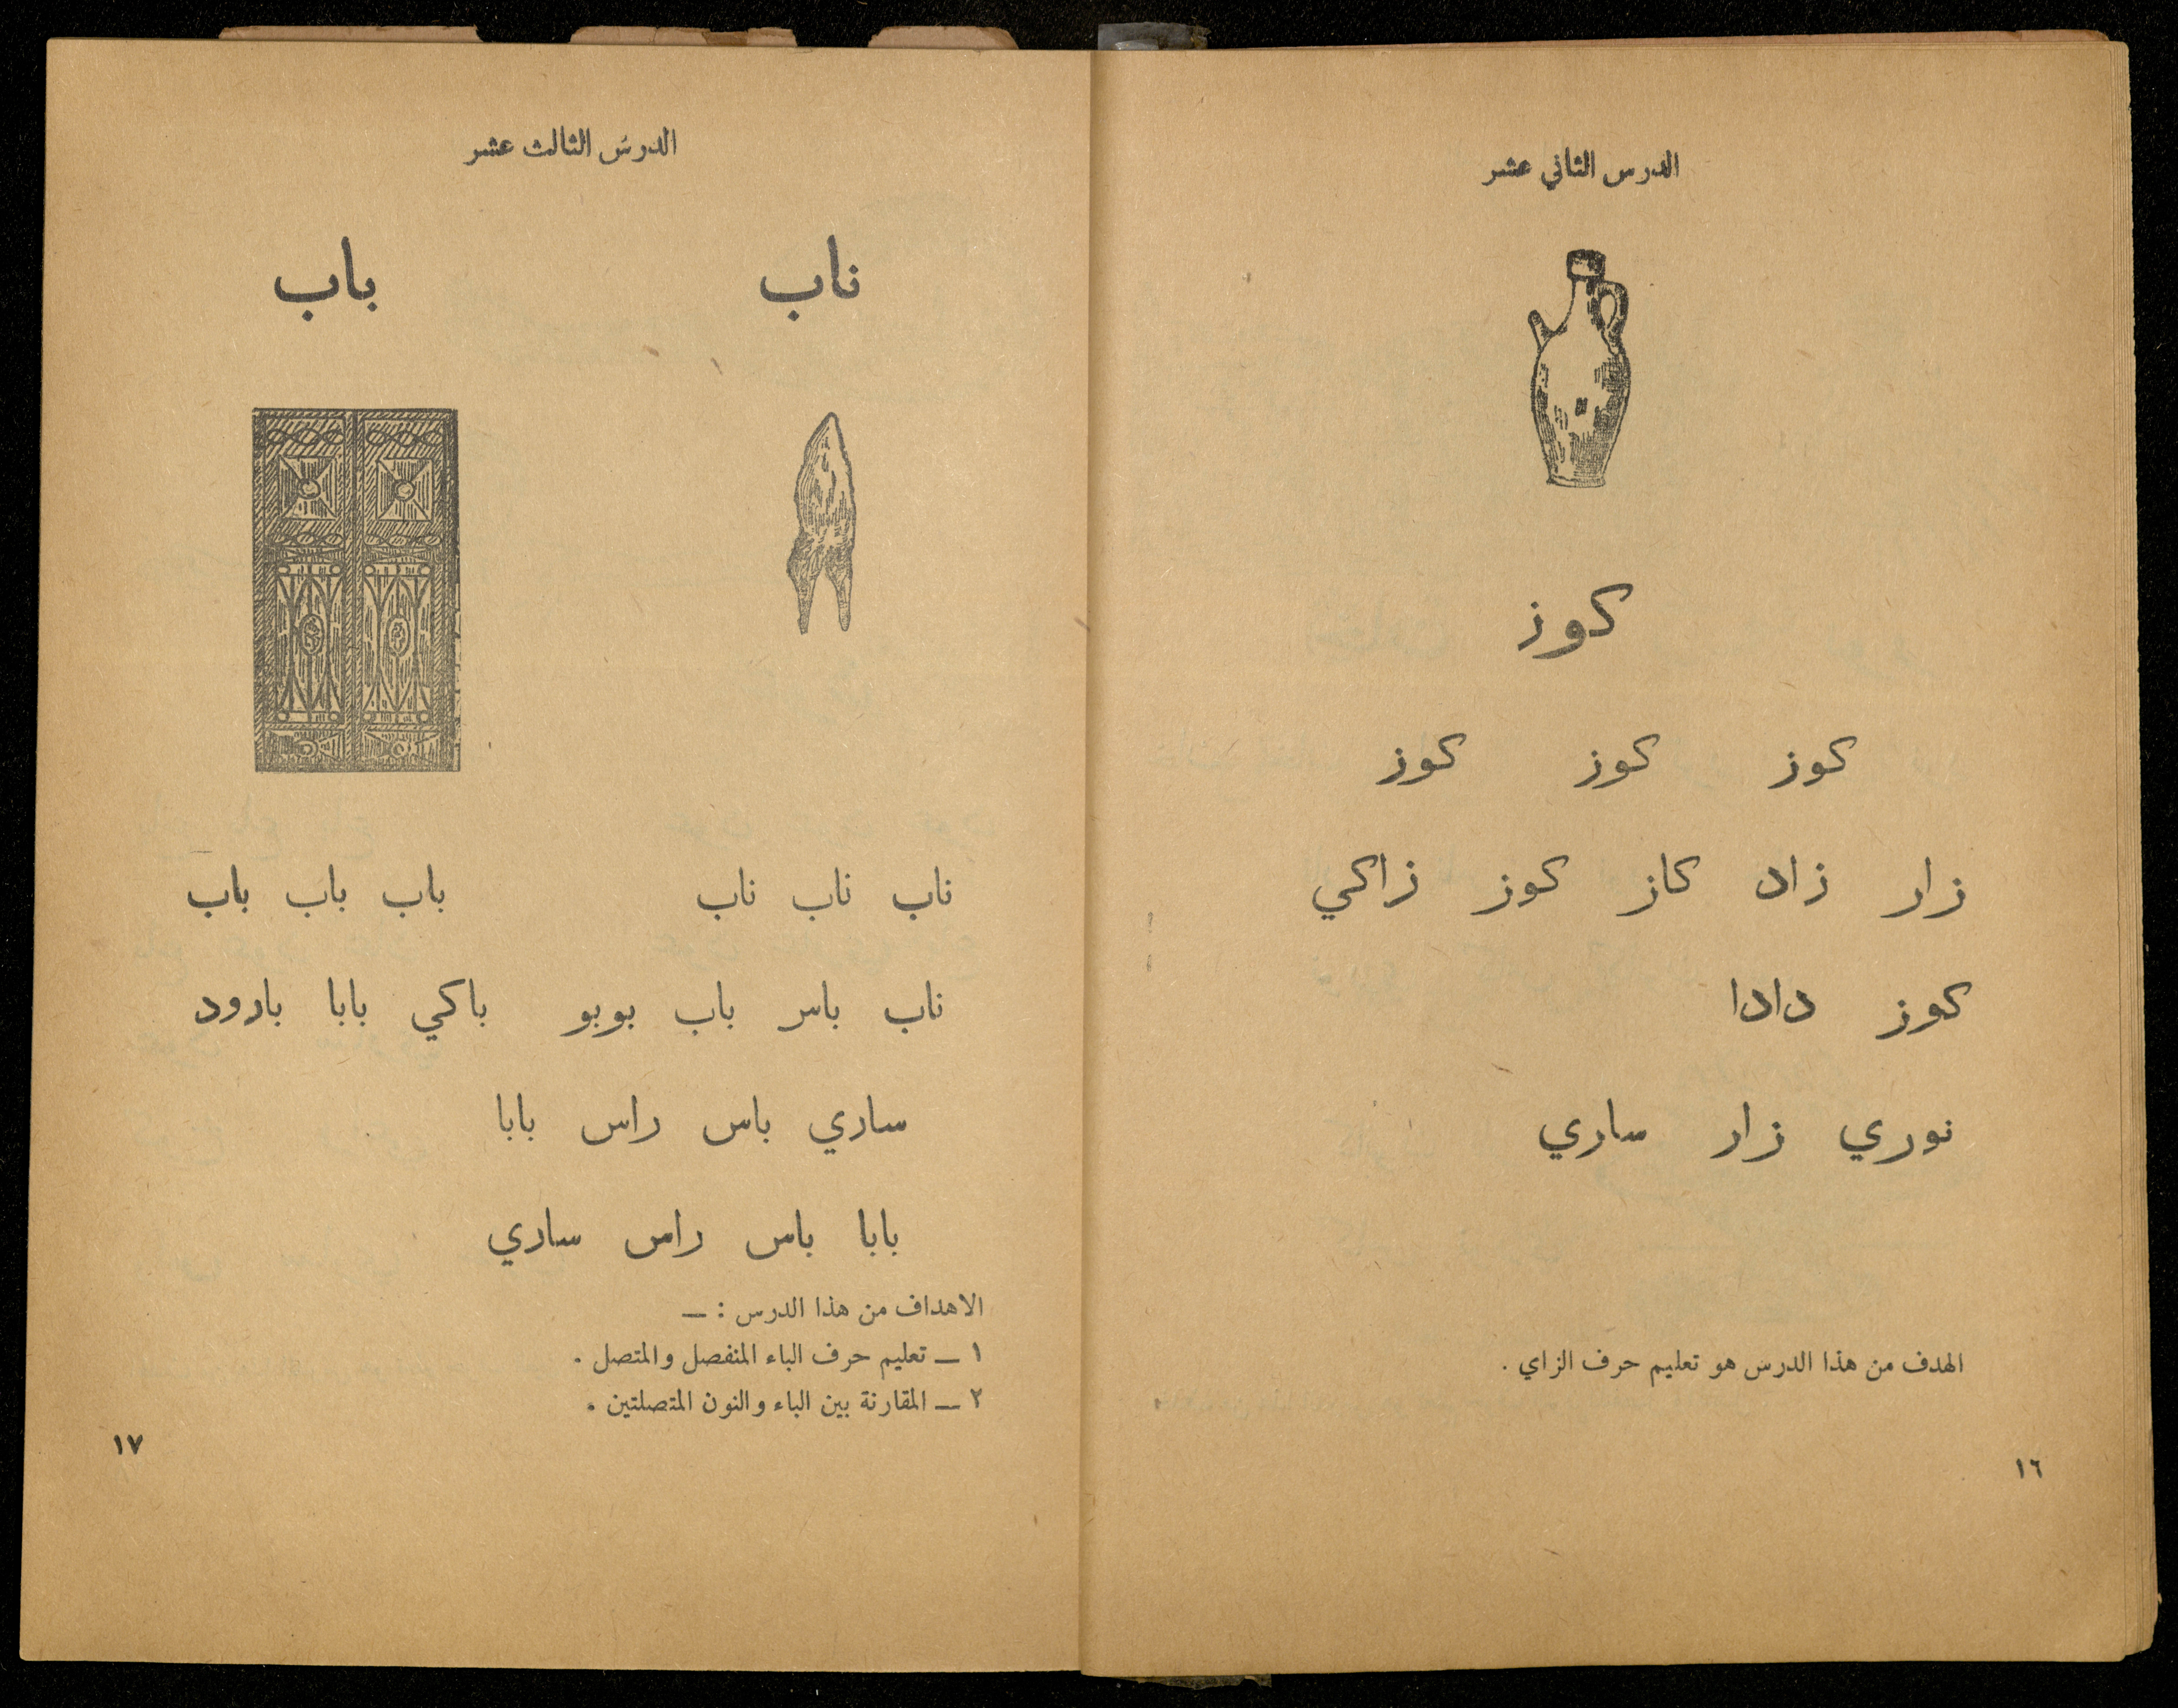 الدرس الثاني عشر
كوز
كوز كوز كوز
زار زاد كاز كوز زاكي
كوز دادا
نوري زار ساري
الهدف من هذا الدرس هو تعليم حرف الزاي .
١٦
الدرس الثالث عشر
ناب باب
ناب ناب ناب باب باب باب
ناب باس باب بوبو باكي بابا بارود
ساري باس راس بابا
بابا باس راس ساري
الاهداف من هذا الدرس : —
١ — تعليم حرف الباء المنفصل والمتصل .
٢ — المقارنة بين الباء والنون المتصلتين .
١٧